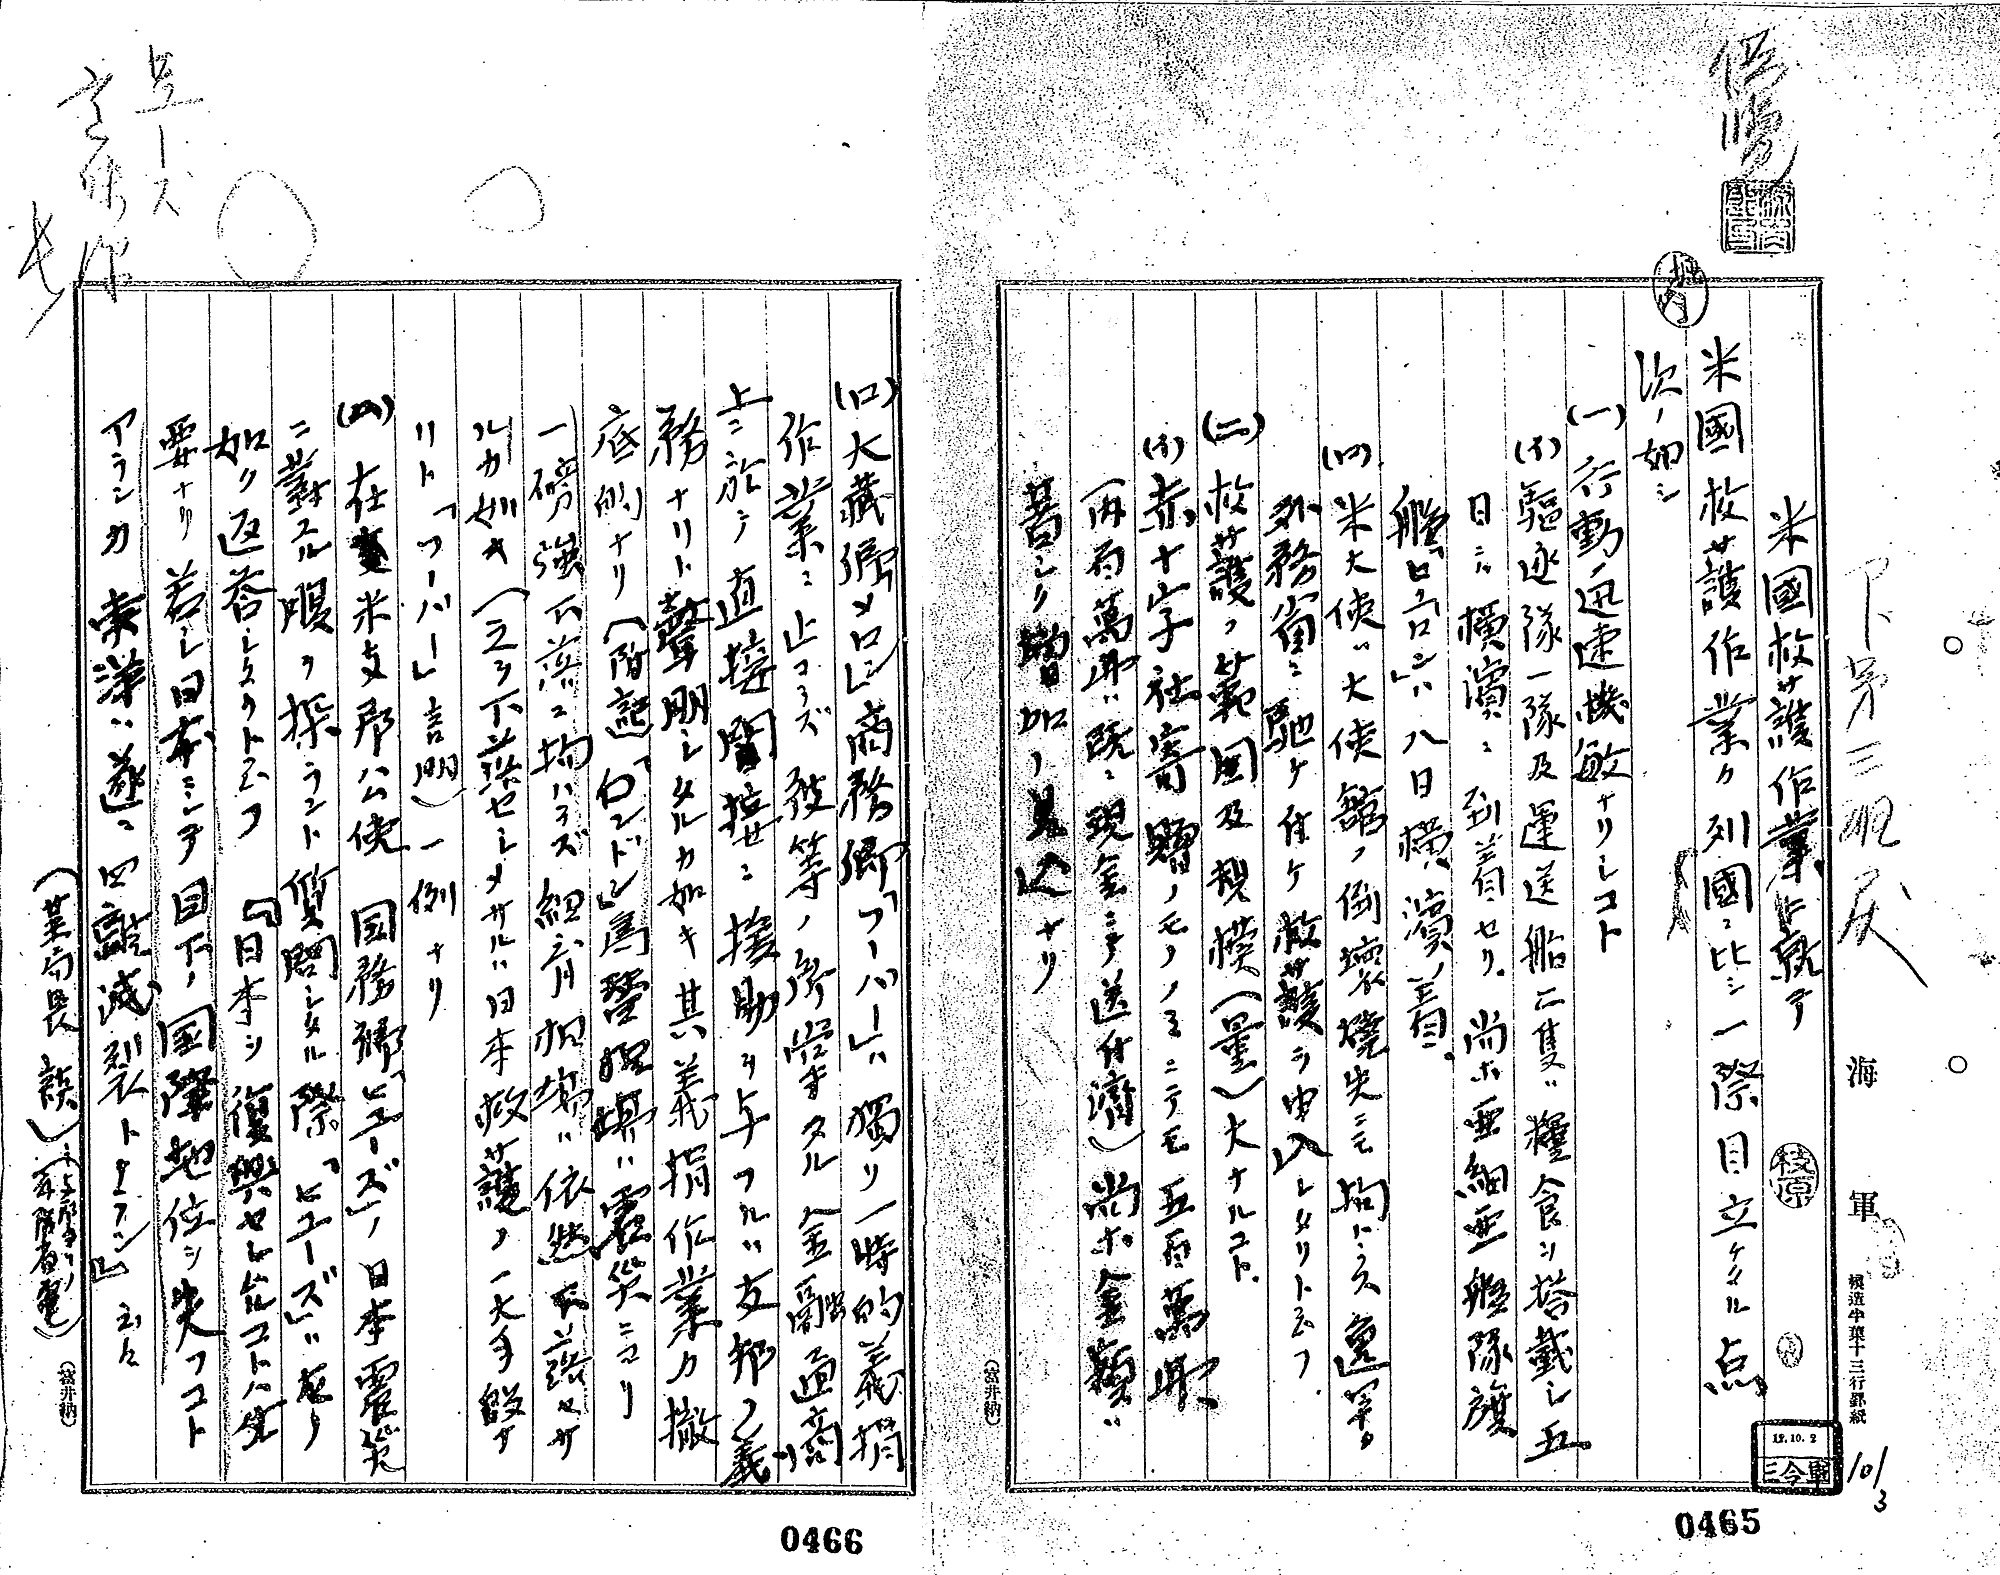 米國救護作業ニ就テ
米國救護作業カ列國ニ比シ一際目立ケタル点
次ノ如シ
(一)行動ノ迅速機敏ナリシコト
(イ)驅逐隊一隊及運送船二隻ハ糧食ヲ搭載シ五
日ニハ横濱ニ到着セリ。尚ホ亜細亜艦隊旗
艦「ヒューロン」ハ八日横濱着。
(ロ)米大使ハ大使館ノ倒壊燒失ニモ拘ハラス逸早ク
外務省ニ馳ケ付ケ救護ヲ申入レタリト云フ
(二)救護ノ範囲及規模(量)大ナルコト。
(イ)赤十字社寄贈ノモノノミニテモ五百萬弗
(内百萬弗ハ既ニ現金ニテ送付濟)尚ホ金額ハ
著シク増加ノ見込ナリ
(ロ)大藏卿「メロン」商務卿「フーバー」ハ獨リ一時的義捐
作業ニ止マラズ彼等ノ所管タル金融通商
上ニ於テ直接間接ニ援助ヲ与フルハ友邦ノ義
務ナリト聲明シタルカ如キ其義捐作業カ徹
底的ナリ(附記「ロンドン」為替相場ハ震災ニヨリ
一磅強下落ニ拘ハラズ紐育相場ハ依然下落セサ
ルカ如キ(之ヲ下落セシメサルハ日本救護ノ一大手段ナ
リト「フーバー」言明)一例ナリ
(四)在支米支那公使 国務卿「ヒューズ」ノ日本震災
ニ對スル腹ヲ探ラント質問シタル際「ヒューズ」ハ左ノ
如ク返答シタリト云フ 『日本ヲ復興セシムルコトハ必
要ナリ若シ日本ニシテ目下ノ國際地位ヲ失フコト
アランカ東洋ハ遂ニ四離滅裂トナラン』云々
(某官長談)
0465
0466
海軍
枝原
12.10.2
軍令三
10/3
(當井納)
(當井納)
ヒューズ